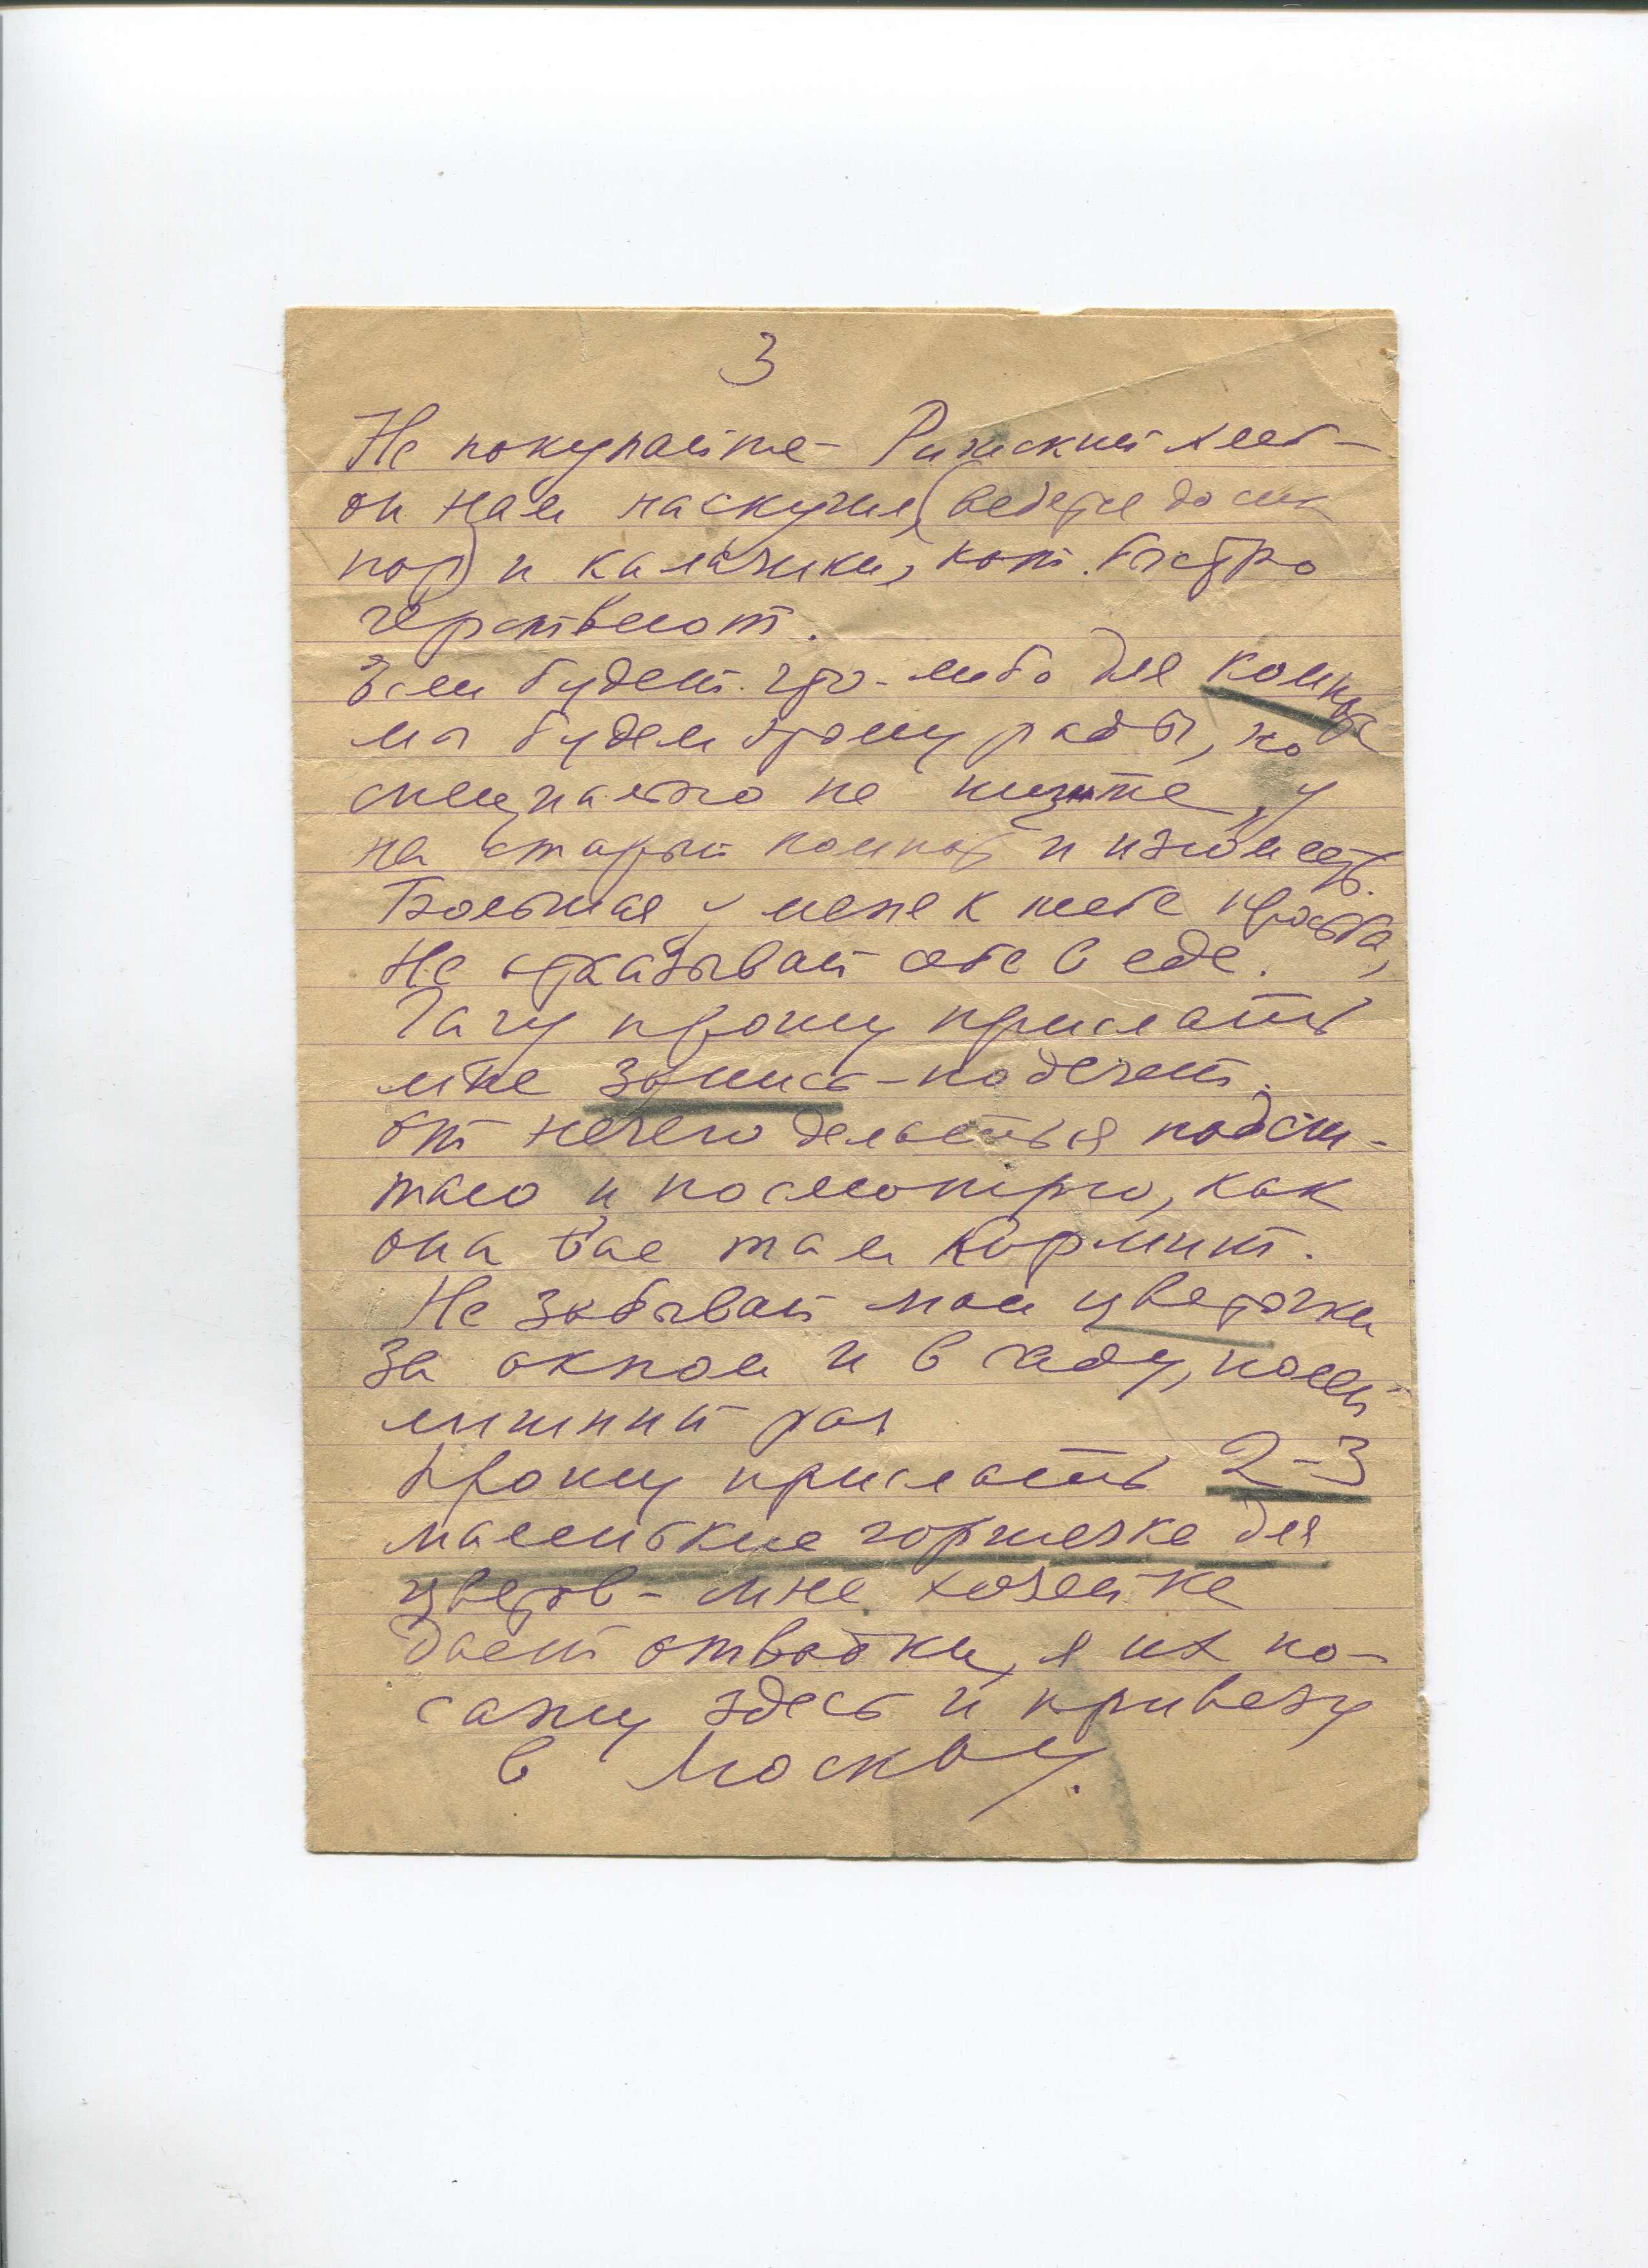 3
Не покупайте - Рижский хлеб -
он нам наскучил, (ведерце до сих
пор) и калачики, кот. быстро
черствеют.
Если будет что-либо для компота
мы будем этому рады, но
специально не ищите, у
на старый компот и изюм есть.
Большая у меня к тебе просьба,
Не отказывай себе в еде.
Тату прошу прислать
мне запись - подсчет.
от нечего делать я подсчи-
таю и посмотрю, как
она Вас там кормит.
Не забывай мои цветочки
за окном и в саду, полей
лишний раз
Прошу прислать 2-3
маленькие горшочка для
цветов - мне хозяйка
дает отводки, я их по-
сажу здесь и привезу
в Москву.